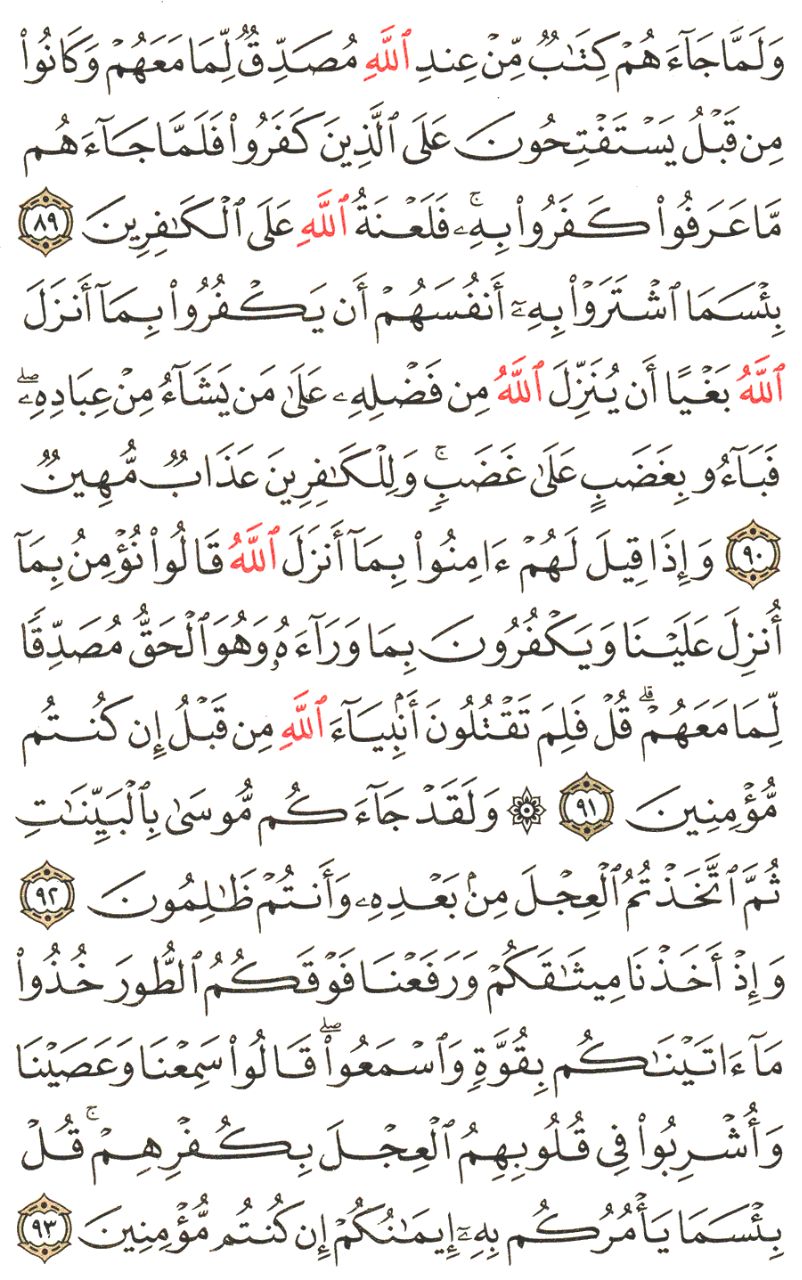 وَلَمَّا جَآءَهُمْ كِتَٰبٌ مِّنْ عِندِ ٱللَّهِ مُصَدِّقٌ لِّمَا مَعَهُمْ وَكَانُوا۟
مِن قَبْلُ يَسْتَفْتِحُونَ عَلَى ٱلَّذِينَ كَفَرُوا۟ فَلَمَّا جَآءَهُم
مَّا عَرَفُوا۟ كَفَرُوا۟ بِهِۦ ۚ فَلَعْنَةُ ٱللَّهِ عَلَى ٱلْكَٰفِرِينَ ٨٩
بِئْسَمَا ٱشْتَرَوْا۟ بِهِۦٓ أَنفُسَهُمْ أَن يَكْفُرُوا۟ بِمَآ أَنزَلَ
ٱللَّهُ بَغْيًا أَن يُنَزِّلَ ٱللَّهُ مِن فَضْلِهِۦ عَلَىٰ مَن يَشَآءُ مِنْ عِبَادِهِۦ ۖ
فَبَآءُو بِغَضَبٍ عَلَىٰ غَضَبٍ ۚ وَلِلْكَٰفِرِينَ عَذَابٌ مُّهِينٌ
٩٠ وَإِذَا قِيلَ لَهُمْ ءَامِنُوا۟ بِمَآ أَنزَلَ ٱللَّهُ قَالُوا۟ نُؤْمِنُ بِمَآ
أُنزِلَ عَلَيْنَا وَيَكْفُرُونَ بِمَا وَرَآءَهُۥ وَهُوَ ٱلْحَقُّ مُصَدِّقًا
لِّمَا مَعَهُمْ ۗ قُلْ فَلِمَ تَقْتُلُونَ أَنۢبِيَآءَ ٱللَّهِ مِن قَبْلُ إِن كُنتُم
مُّؤْمِنِينَ ٩١ ۞ وَلَقَدْ جَآءَكُم مُّوسَىٰ بِٱلْبَيِّنَٰتِ
ثُمَّ ٱتَّخَذْتُمُ ٱلْعِجْلَ مِنۢ بَعْدِهِۦ وَأَنتُمْ ظَٰلِمُونَ ٩٢
وَإِذْ أَخَذْنَا مِيثَٰقَكُمْ وَرَفَعْنَا فَوْقَكُمُ ٱلطُّورَ خُذُوا۟
مَآ ءَاتَيْنَٰكُم بِقُوَّةٍ وَٱسْمَعُوا۟ ۖ قَالُوا۟ سَمِعْنَا وَعَصَيْنَا
وَأُشْرِبُوا۟ فِى قُلُوبِهِمُ ٱلْعِجْلَ بِكُفْرِهِمْ ۚ قُلْ
بِئْسَمَا يَأْمُرُكُم بِهِۦٓ إِيمَٰنُكُمْ إِن كُنتُم مُّؤْمِنِينَ ٩٣